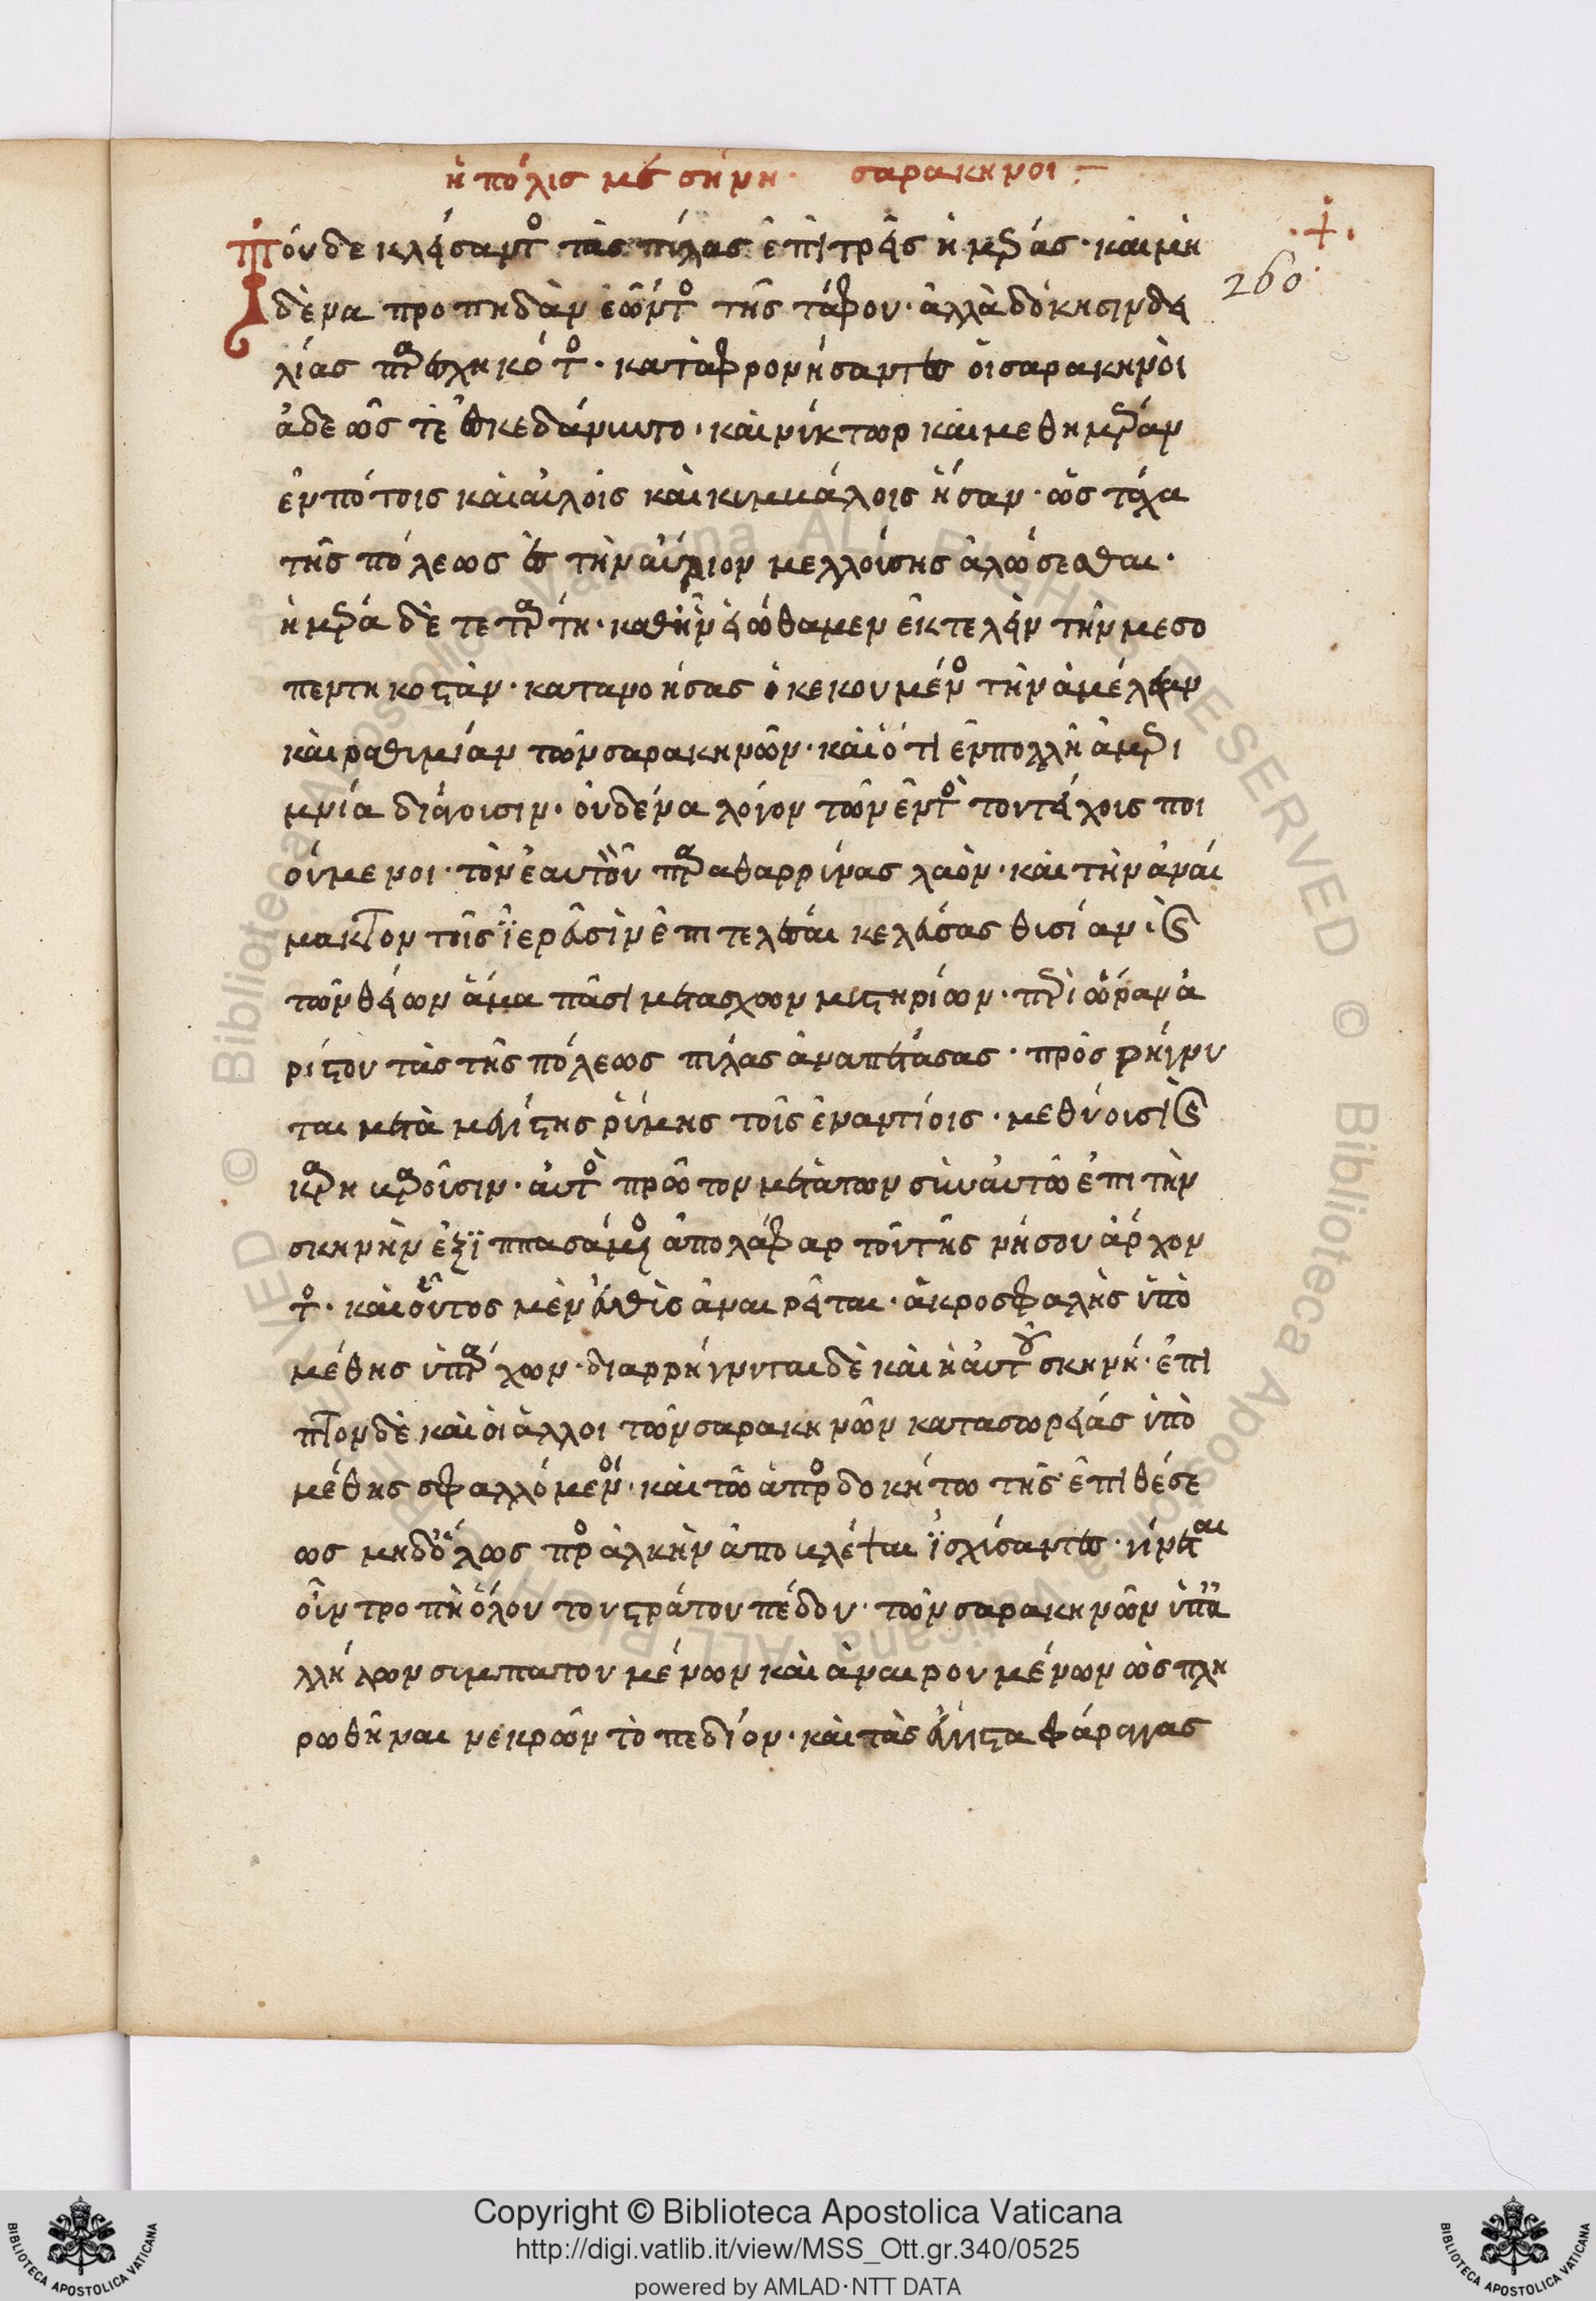 ἡ πόλις μεσήνη· σαρακηνοι :–
Τούδε κλείσαντος τὰς πύλας ἐπὶ τρεῖς ἡμέρας· καὶ μὴ
260
δένα προπηδὰν ἐῶντος τῆς τάφρου· ἀλλὰ δόκησιν δει
λίας παρεσχηκότος· καταφρονήσαντες οἱ σαρακηνοὶ
ἀδεῶς τὲ ἐσκεδάννυντο· καὶ νύκτωρ καὶ μεθημέραν
ἐν πότοις καὶ αὐλοῖς καὶ κυμβάλοις ἦσαν· ὡς τάχα
τῆς πόλεως ἐς τὴν αὔριον μελλούσης ἁλώσεσθαι·
ἡμέρα δὲ τετάρτη· καθ' ἣν εἰώθαμεν ἐκτελεῖν τὴν μεσο
πεντηκοστὰν· κατανοήσας ὁ κεκουμένος τὴν ἀμέλειαν
καὶ ραθυμίαν τῶν σαρακηνῶν· καὶ ὅτι ἐν πολλῆ ἀμερι
μνία διάγουσιν· οὐδένα λόγον τῶν ἐντὸς του τείχους ποι
ούμενοι· τὸν ἑαυτοῦ παραθαρρύνας λαὸν· καὶ τὴν ἀναί
μακτον τοῖς ἱερεῦσιν ἐπιτελέσαι κελεύσας θυσίαν· καὶ
τῶν θείων ἅμα πᾶσι μετασχων μυστηρίων· περὶ ὥραν ἀ
ρίστου τὰς τῆς πόλεως πύλας ἀναπετάσας· πρὸς ρήγνυ
ται μετὰ μεγίστης ῥύμης τοῖς ἐναντίοις· μεθύουσι καὶ
καρηβαροῦσιν· αὐτὸς πρῶτον μετὰ τῶν σὺν αὐτῶ ἐπι τὴν
σκηνὴν ἐξιππασάμενος ἀπολάφαρ τοῦ τῆς νήσου ἄρχον
τος· καὶ οὗτος μὲν εὐθὺς ἀναιρεῖται· ἀκροσφαλὴς ὑπὸ
μέθης ὑπάρχων· διαρρήγνυται δὲ καὶ ἡ αὐτοῦ σκηνή· ἔπι
πτον δὲ καὶ οἱ ἄλλοι τῶν σαρακηνῶν κατασωρείας ὑπὸ
μέθης σφαλλόμενοι· καὶ τῶ ἀπροσδοκήτω τῆς ἐπιθέσε
ως μηδόλως πρὸς ἀλκὴν ἀποβλέψαι ἰσχύσαντες· γίνεται
οὖν τροπὴ ὅλου του στρατουπέδου· τῶν σαρακηνῶν ὑπ' ἀ
λλήλων συμπατουμένων καὶ ἀναιρουμένων ὡς πλη
ρωθῆναι νεκρῶν τὸ πεδίον· καὶ τὰς ἔγγιστα φάραγγας
Copyright © Biblioteca Apostolica Vaticana
http://digi.vatlib.it/view/MSS_Ott.gr.340/0525
powered by AMLAD·NTT DATA